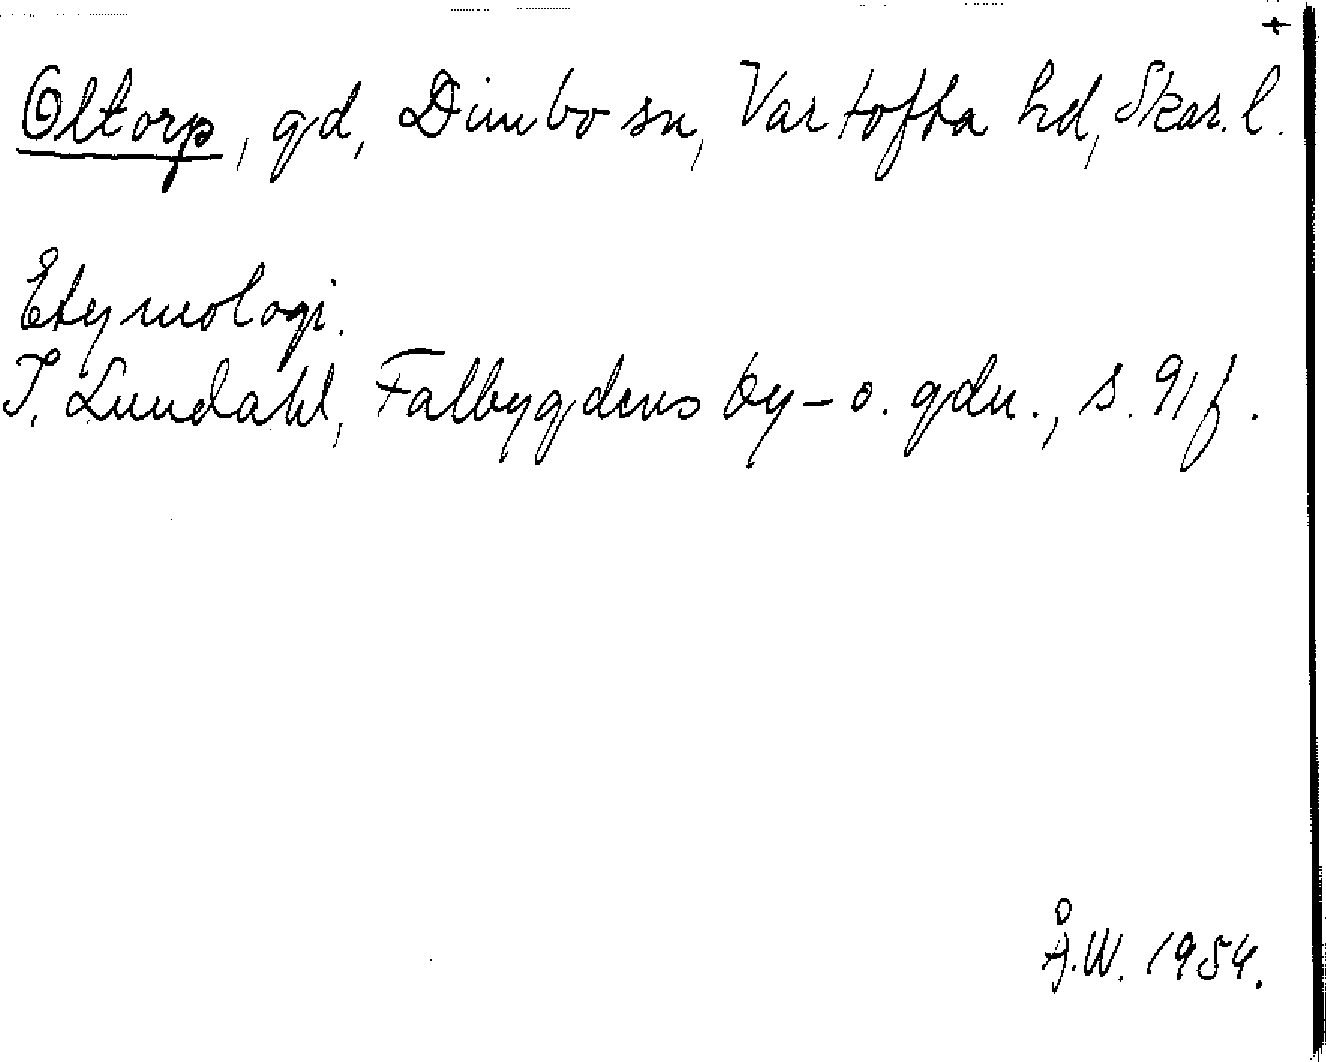 +
Oltorp, gd, Dimbo sn, Vartofta hd, Skar. l.
Etymologi.
I. Lundahl, Falbygdens by- o. gdn., s. 91 f.
Å.W. 1954.